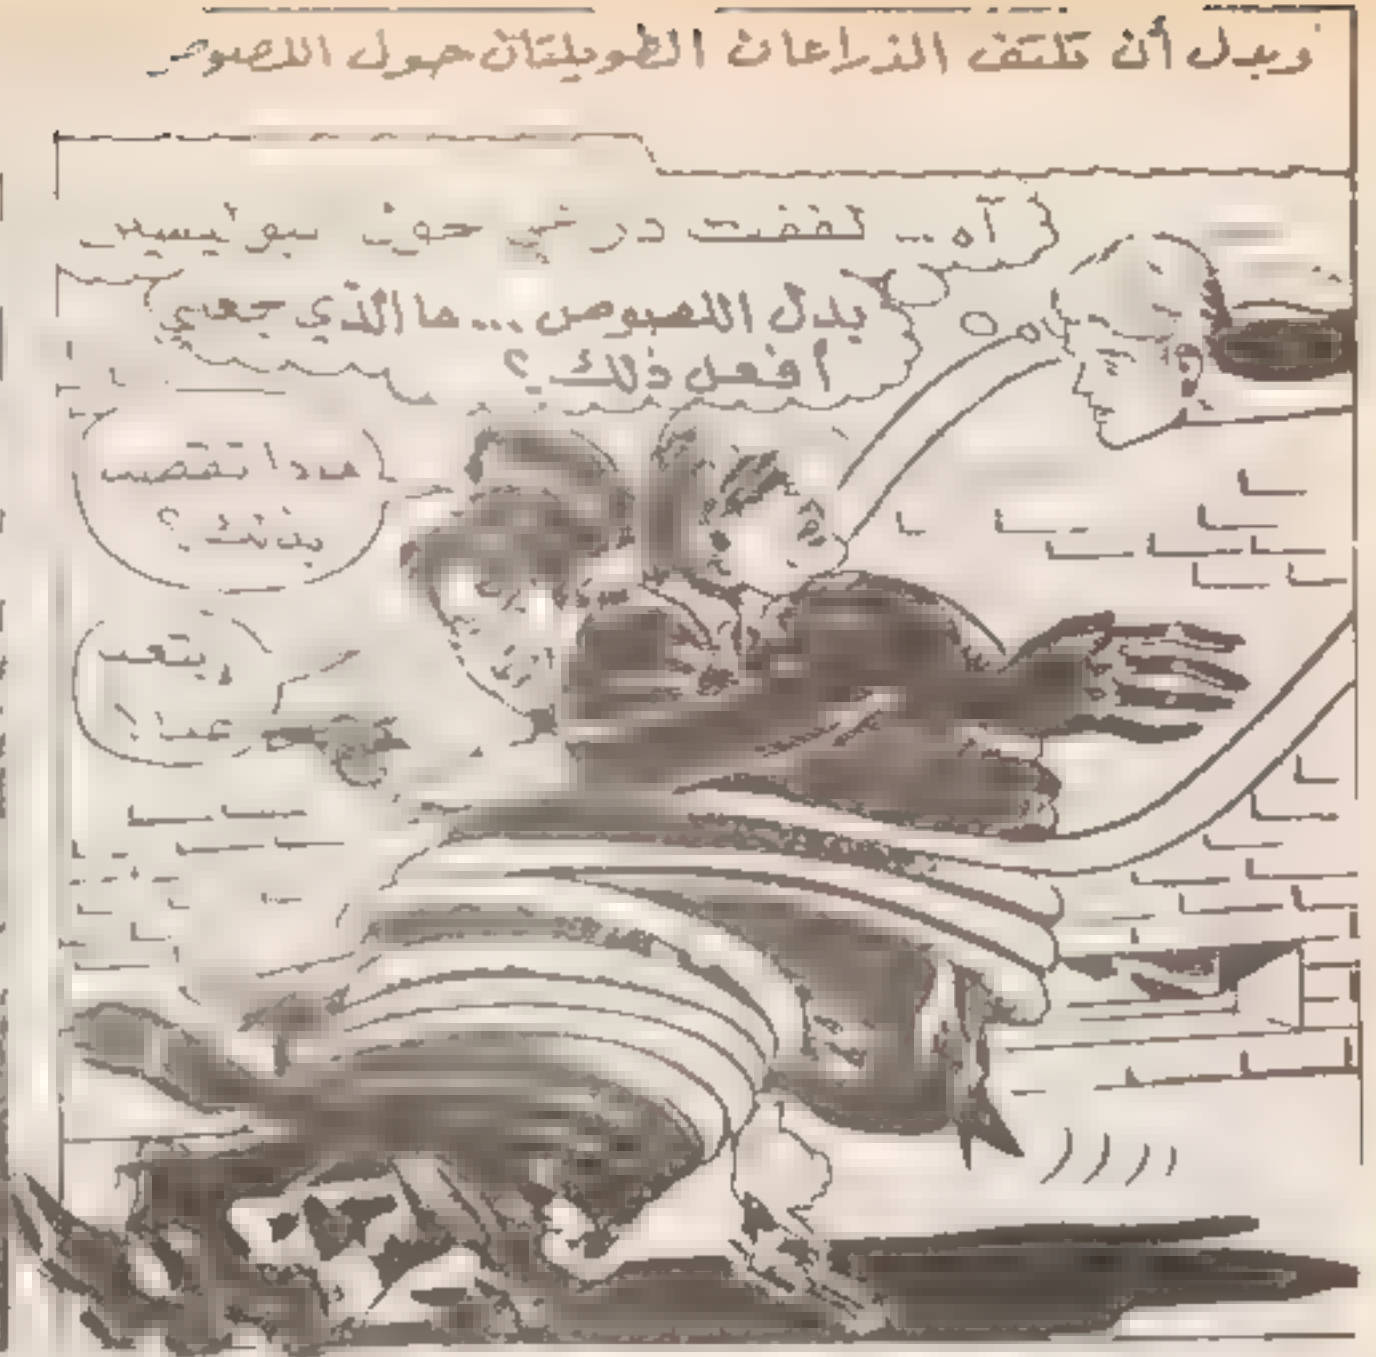 وبدل أن تلتف الذراعان الطويلتان حول اللصوص
آه .. لففت ذراعي حول البوليس
بدل اللصوص ... ما الذي جعلني
أفعل ذلك ؟
ماذا تقصد
بذلك ؟